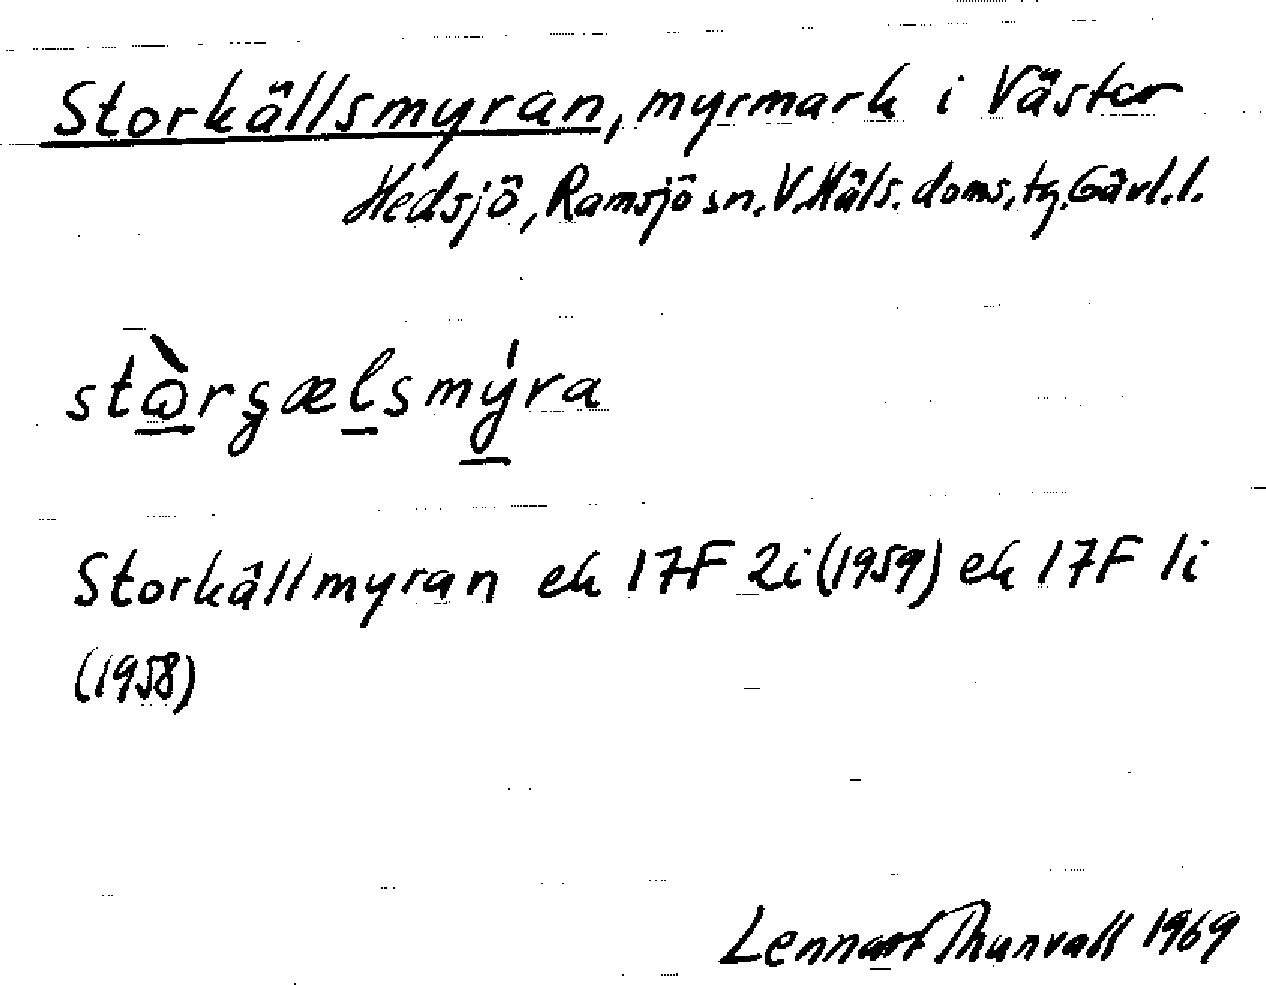 Storkällsmyran, myrmark i Väster
Hedsjö, Ramsjö sn. V. Häls. doms. tg. Gävl. l.
stòrʂælsmýra
Storkällmyran ek 17F 2i (1959) ek 17F 1i
(1958)
Lennart Thunvall 1969